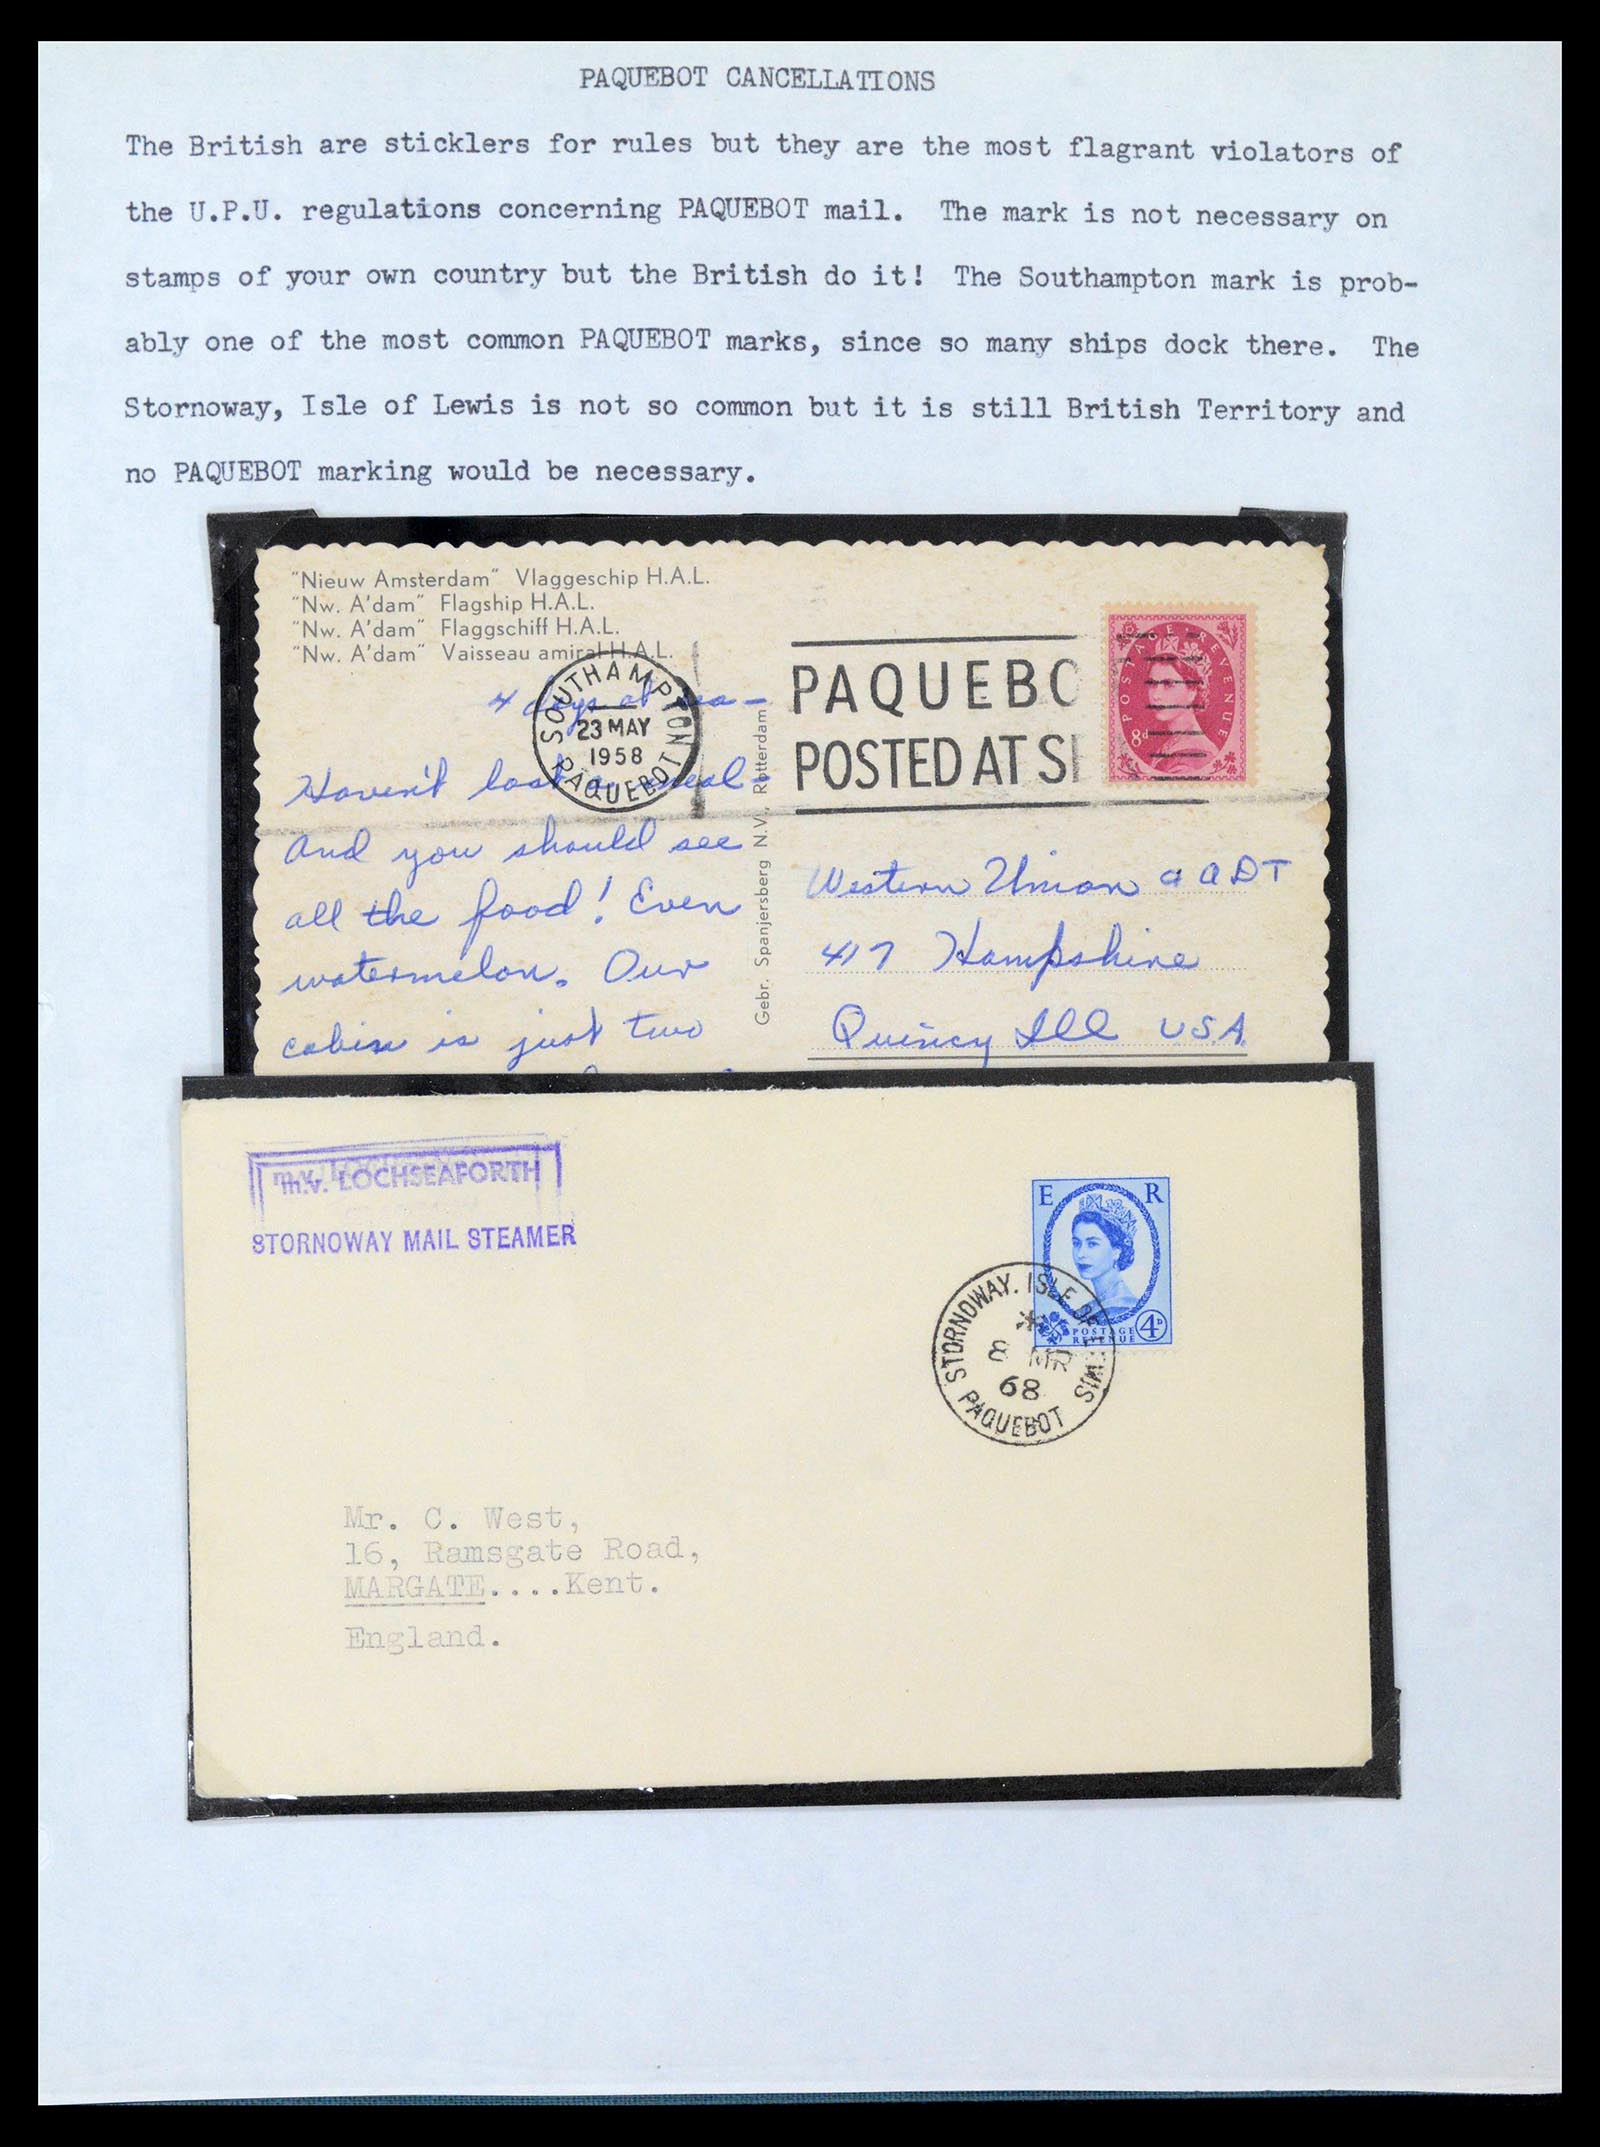 PAQUEBOT CANCELLATIONS
The British are sticklers for rules but they are the most flagrant violators of
the U.P.U. regulations concerning PAQUEBOT mail. The mark is not necessary on
stamps of your own country but the British do it! The Southampton mark is prob-
ably one of the most common PAQUEBOT marks, since so many ships dock there. The
Stornoway, Isle of Lewis is not so common but it is still British Territory and
no PAQUEBOT marking would be necessary.
"Nieuw Amsterdam" Vlaggeschip H.A.L.
"Nw. A'dam" Flagship H.A.L.
"Nw. A'dam" Flaggschiff H.A.L.
"Nw. A'dam" Vaisseau amiral H.A.L.
SOUTHAMPTON
23 MAY
1958
PAQUEBOT
PAQUEBO
POSTED AT S
POSTAGE REVENUE
8d
4 days at sea-
Haven't lost a meal-
And you should see
all the food! Even
watermelon. Our
cabin is just two
Gebr. Spanjersberg N.V., Rotterdam
Western Union a ADT
417 Hampshire
Quincy Ill USA
m.v. LOCHSEAFORTH
STORNOWAY MAIL STEAMER
E R
POSTAGE
REVENUE
4D
STORNOWAY. ISLE OF LEWIS
8 MR
68
PAQUEBOT
Mr. C. West,
16, Ramsgate Road,
MARGATE....Kent.
England.